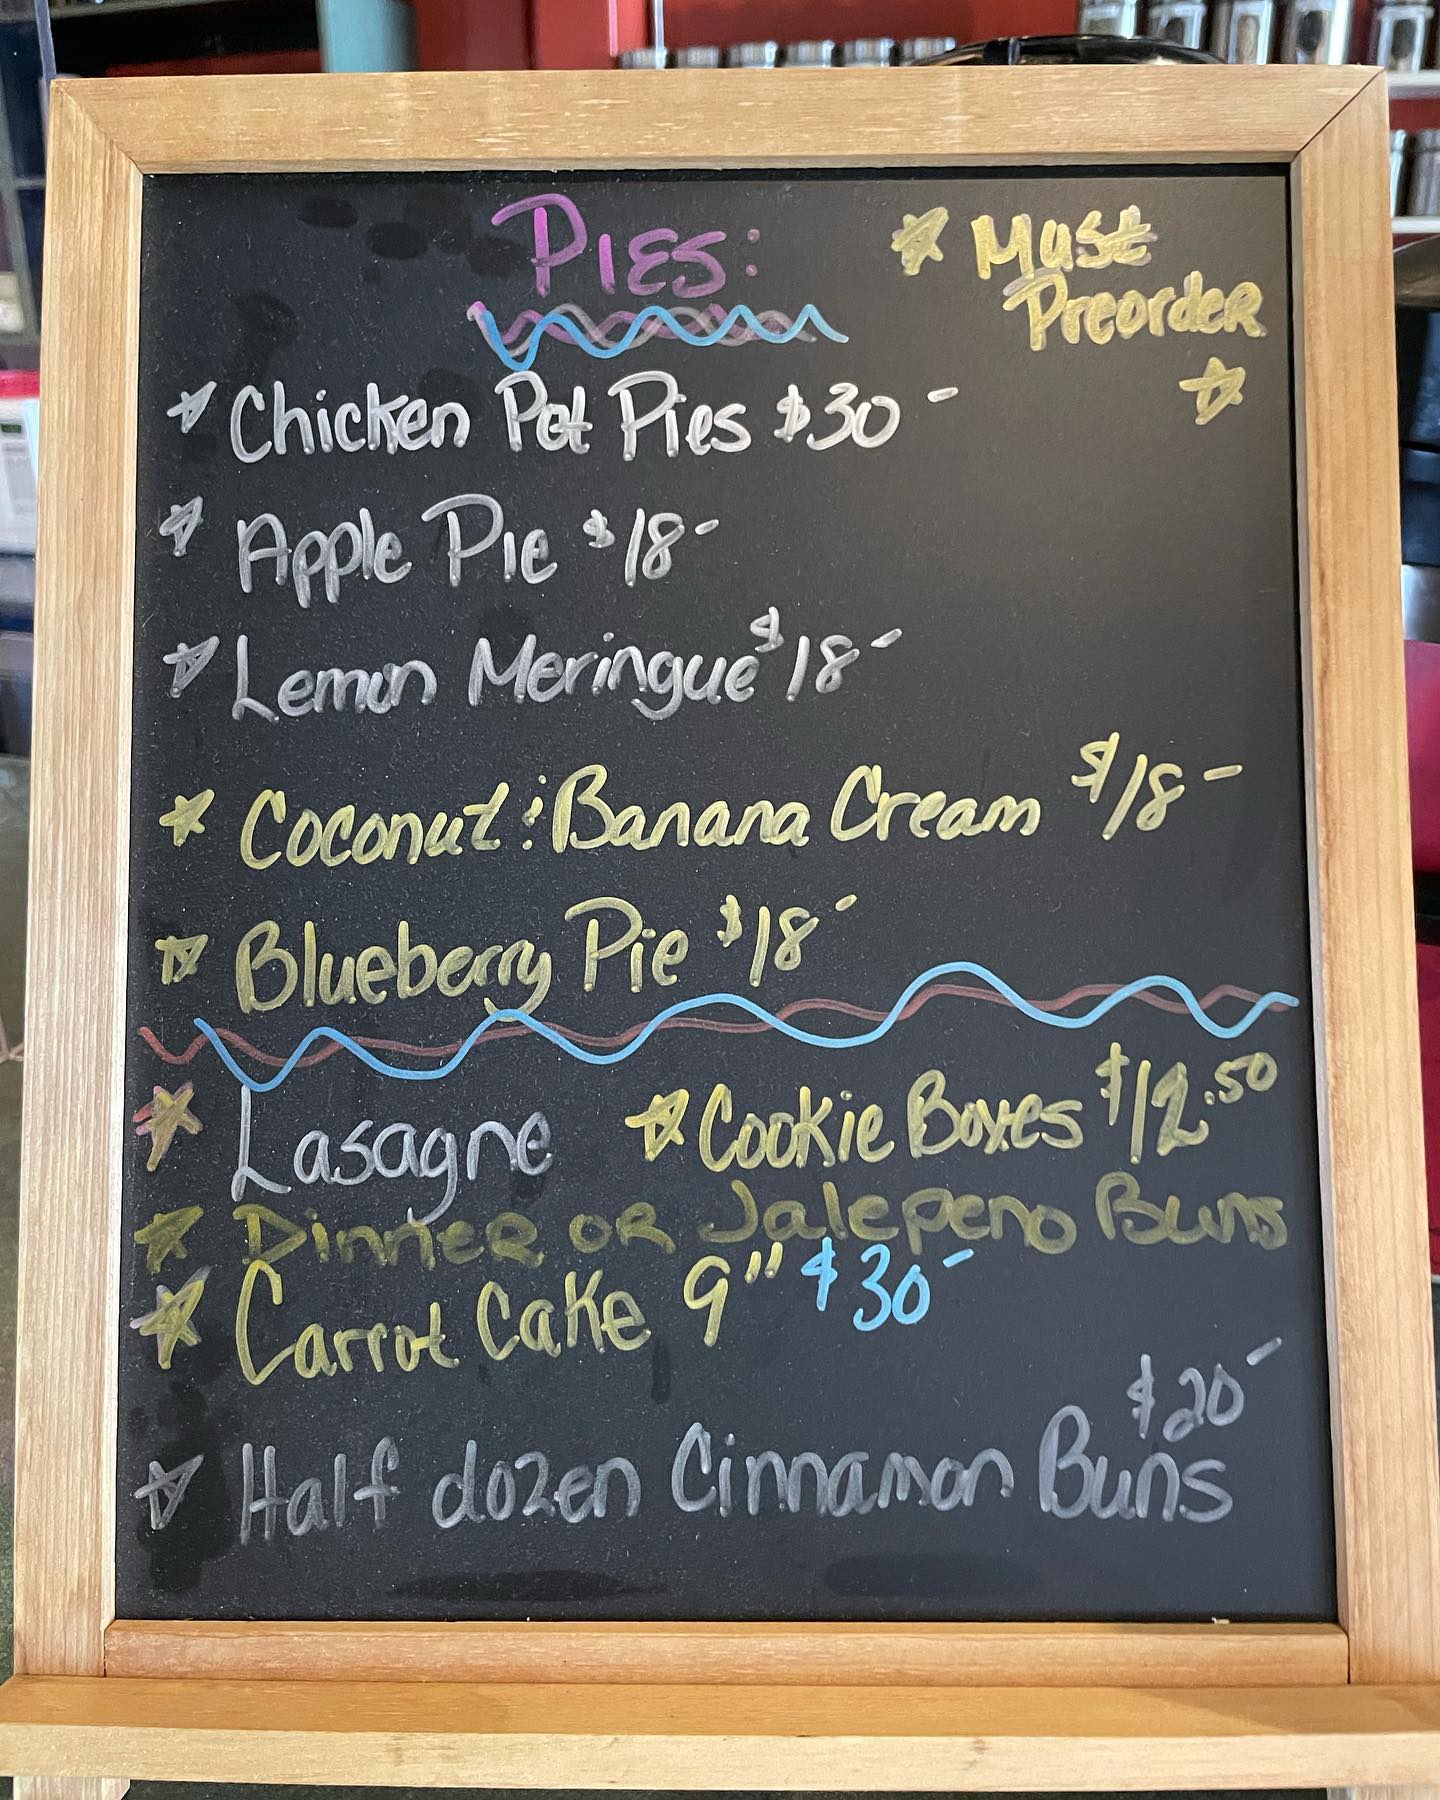 PIES:
Must
Preorder
Chicken Pot Pies $30-
Apple Pie $18-
Lemon Meringue $18-
Coconut : Banana Cream $18-
Blueberry Pie $18-
Lasagne Cookie Boxes $12.50
Dinner or Jalepeno Buns
Carrot Cake 9" $30-
$20-
Half dozen Cinnamon Buns